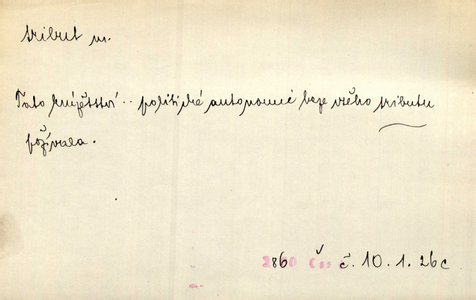 tribut m.
Tato knížetství .. politické autonomie beze všeho tributu
požívala.
86 Č č. 10. 1. 26c